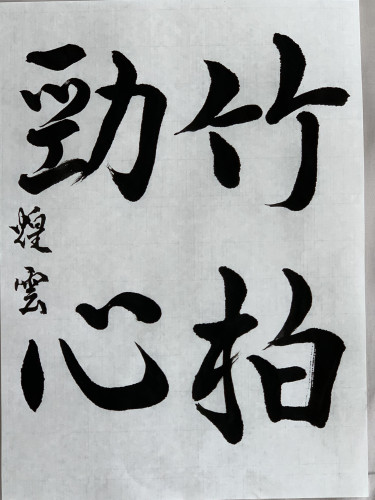 竹柏
勁心
煌雲